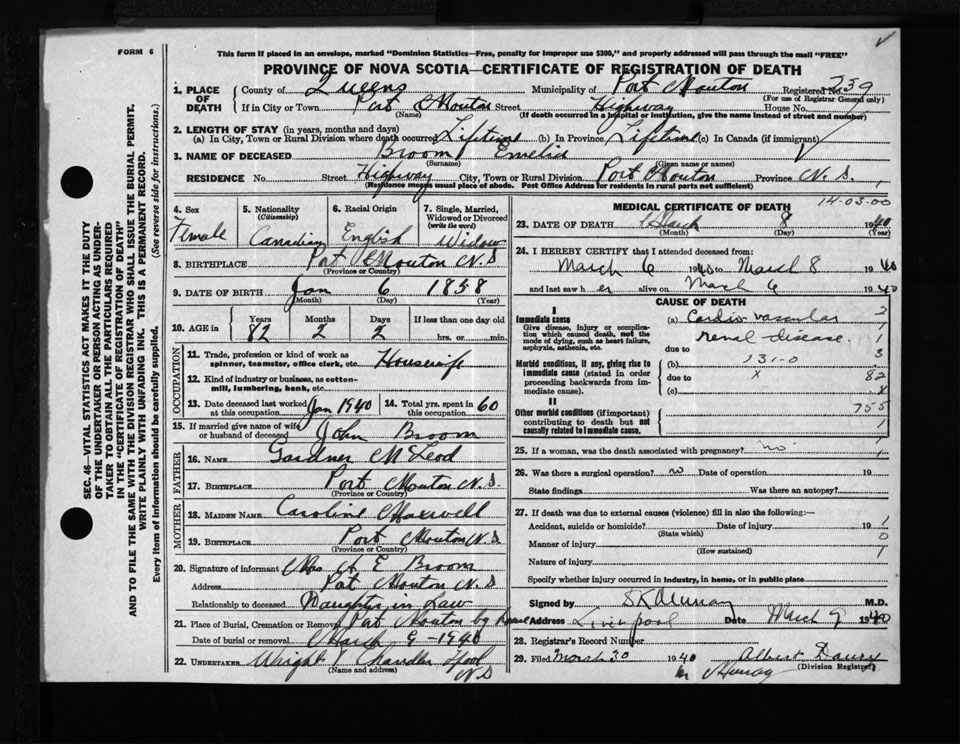 FORM 6
This form if placed in an envelope, marked "Dominion Statistics—Free, penalty for improper use $300," and properly addressed will pass through the mail "FREE"
PROVINCE OF NOVA SCOTIA—CERTIFICATE OF REGISTRATION OF DEATH
SEC. 46—VITAL STATISTICS ACT MAKES IT THE DUTY
OF THE UNDERTAKER OR PERSON ACTING AS UNDER-
TAKER TO OBTAIN ALL THE PARTICULARS REQUIRED
IN THE "CERTIFICATE OF REGISTRATION OF DEATH"
AND TO FILE THE SAME WITH THE DIVISION REGISTRAR WHO SHALL ISSUE THE BURIAL PERMIT.
WRITE PLAINLY WITH UNFADING INK. THIS IS A PERMANENT RECORD.
Every item of information should be carefully supplied. (See reverse side for instructions.)
1. PLACE OF DEATH County of Queens Municipality of Port Mouton Registered No. 739
(For use of Registrar General only)
If in City or Town Port Mouton Street Highway House No.
(Name) (If death occurred in a hospital or institution, give the name instead of street and number)
2. LENGTH OF STAY (in years, months and days)
(a) In City, Town or Rural Division where death occurred Lifetime (b) In Province Lifetime (c) In Canada (if immigrant)
3. NAME OF DECEASED Broom Emelie
(Surname) (Given name or names)
RESIDENCE No. Street Highway City, Town or Rural Division Port Mouton Province N.S.
(Residence means usual place of abode. Post Office Address for residents in rural parts not sufficient)
14-03-00
4. Sex Female
5. Nationality (Citizenship) Canadian
6. Racial Origin English
7. Single, Married, Widowed or Divorced (write the word) Widow
8. BIRTHPLACE Port Mouton N.S
(Province or Country)
9. DATE OF BIRTH Jan 6 1858
(Month) (Day) (Year)
10. AGE in Years Months Days If less than one day old
82 2 2 hrs. or min.
OCCUPATION
11. Trade, profession or kind of work as spinner, teamster, office clerk, etc. Housewife
12. Kind of industry or business, as cotton-mill, lumbering, bank, etc.
13. Date deceased last worked at this occupation Jan 1940 14. Total yrs. spent in this occupation 60
15. If married give name of wife or husband of deceased John Broom
FATHER
16. Name Gardner McLeod
17. Birthplace Port Mouton N.S.
(Province or Country)
MOTHER
18. Maiden Name Caroline Maxwell
19. Birthplace Port Mouton N.S
(Province or Country)
20. Signature of informant Mrs H E Broom
Address Port Mouton N.S
Relationship to deceased Daughter in Law
21. Place of Burial, Cremation or Removal Port Mouton by
Date of burial or removal March 9 - 1940
22. Undertaker Wright Chandler L'pool
(Name and address) N.S
MEDICAL CERTIFICATE OF DEATH
23. DATE OF DEATH March 8 1940
(Month) (Day) (Year)
24. I HEREBY CERTIFY that I attended deceased from:
March 6 1940 to March 8 1940
and last saw her alive on March 6 1940
CAUSE OF DEATH
I
Immediate cause (a) Cardio vascular 2
Give disease, injury or complication which caused death, not the mode of dying, such as heart failure, asphyxia, asthenia, etc. renal disease. 1
due to 3
Morbid conditions, if any, giving rise to immediate cause (stated in order proceeding backwards from immediate cause). (b) 131-0
due to x 82
(c) x
II 755
Other morbid conditions (if important) contributing to death but not causally related to immediate cause. 1
25. If a woman, was the death associated with pregnancy? no 1
26. Was there a surgical operation? no Date of operation 19
State findings Was there an autopsy?
27. If death was due to external causes (violence) fill in also the following:—
Accident, suicide or homicide? Date of injury 19 1
(State which) 0
Manner of injury
(How sustained) 1
Nature of injury
Specify whether injury occurred in industry, in home, or in public place
Signed by S K Murray M.D.
Address Liverpool Date March 9 1940
28. Registrar's Record Number
29. Filed March 30 1940 Albert
(Division Registrar)
Murray